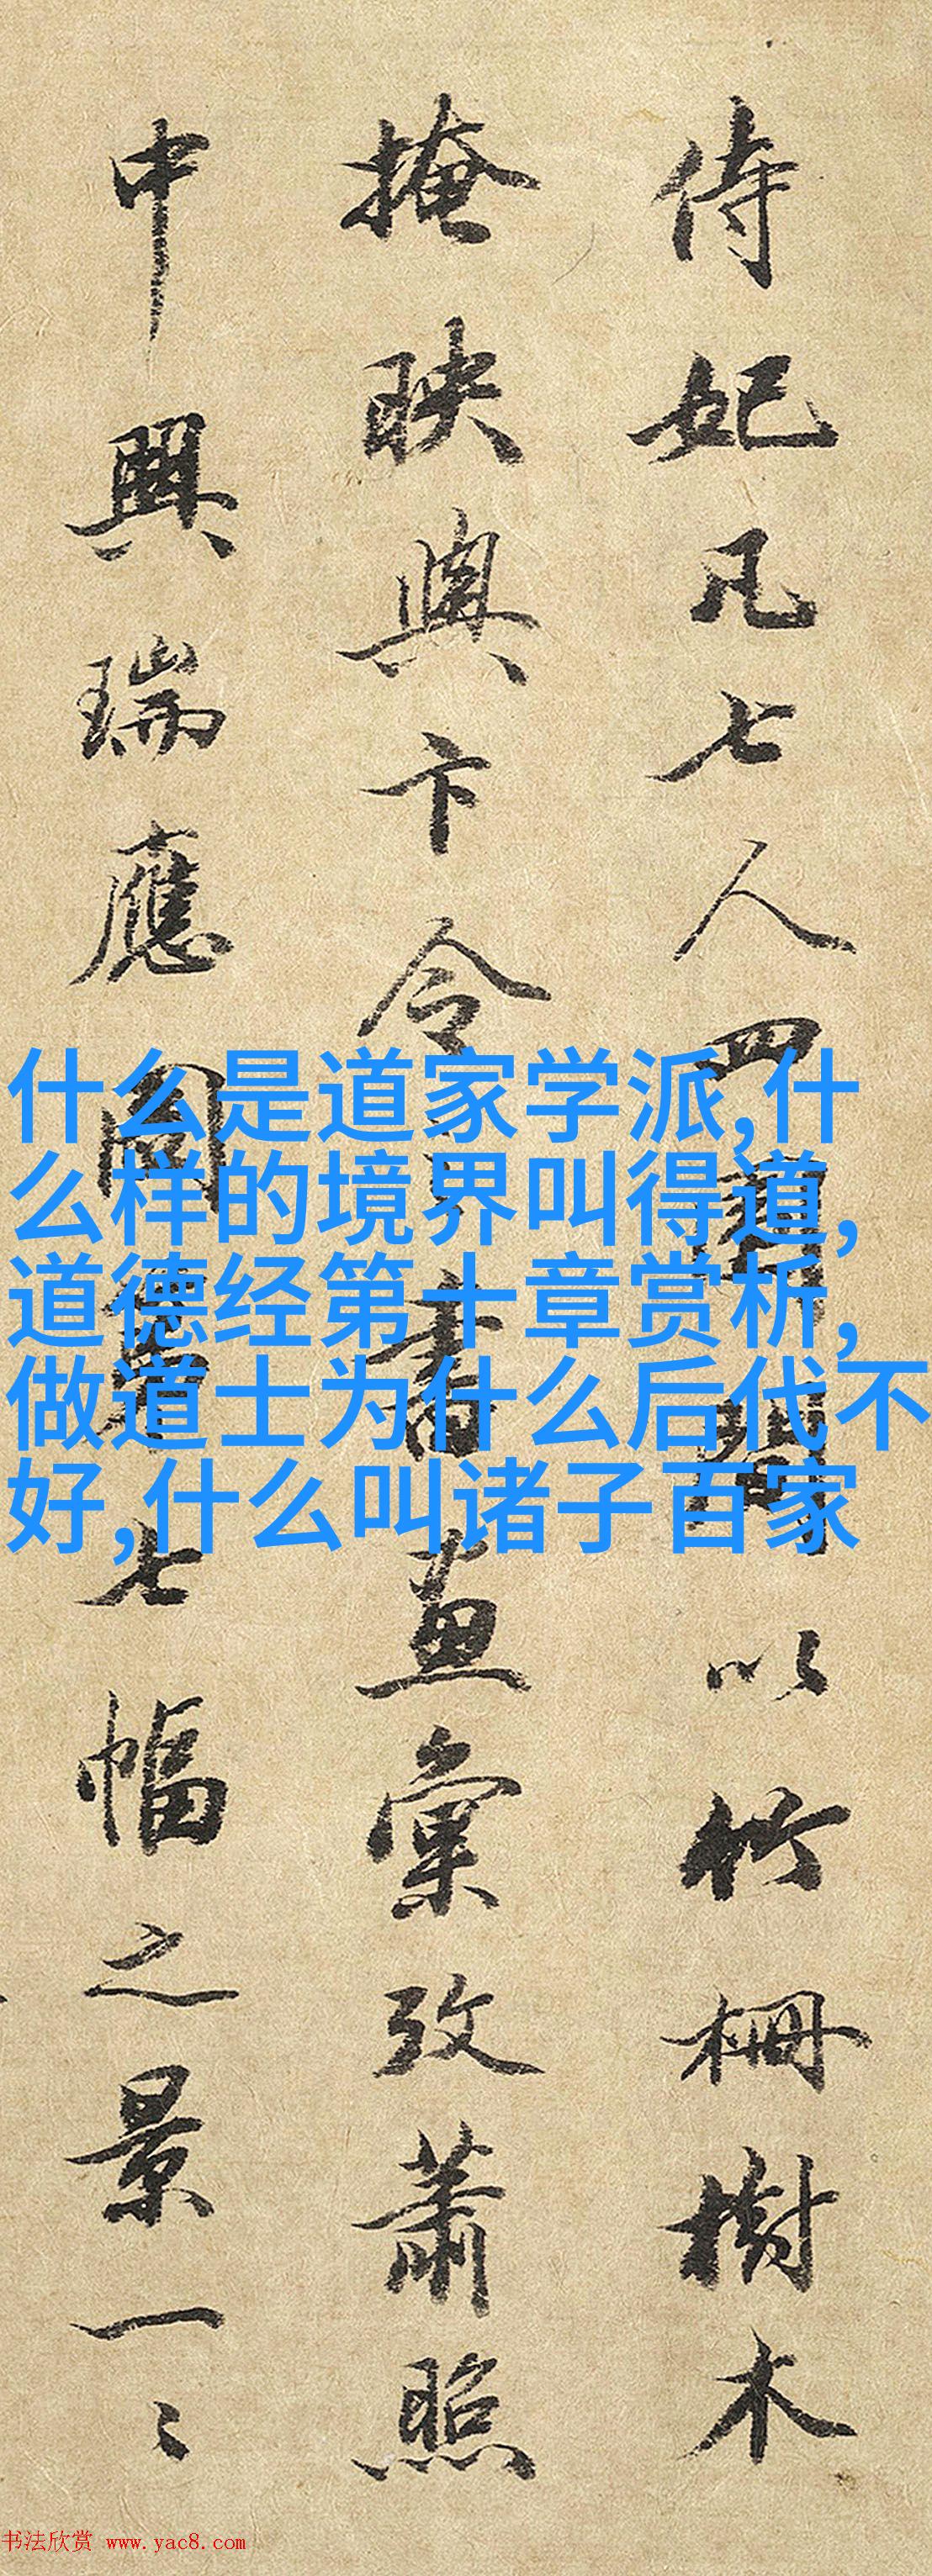 侍妃凡七人四圍間以竹柵樹木
掩映與卞令之書畫彙攷蕭照
中興瑞應圖卷七幅之景一〻
什么是道家学派,什
么样的境界叫得道,
道德经第十章赏析,
做道士为什么后代不
好,什么叫诸子百家
书法欣赏 www.yac8.com